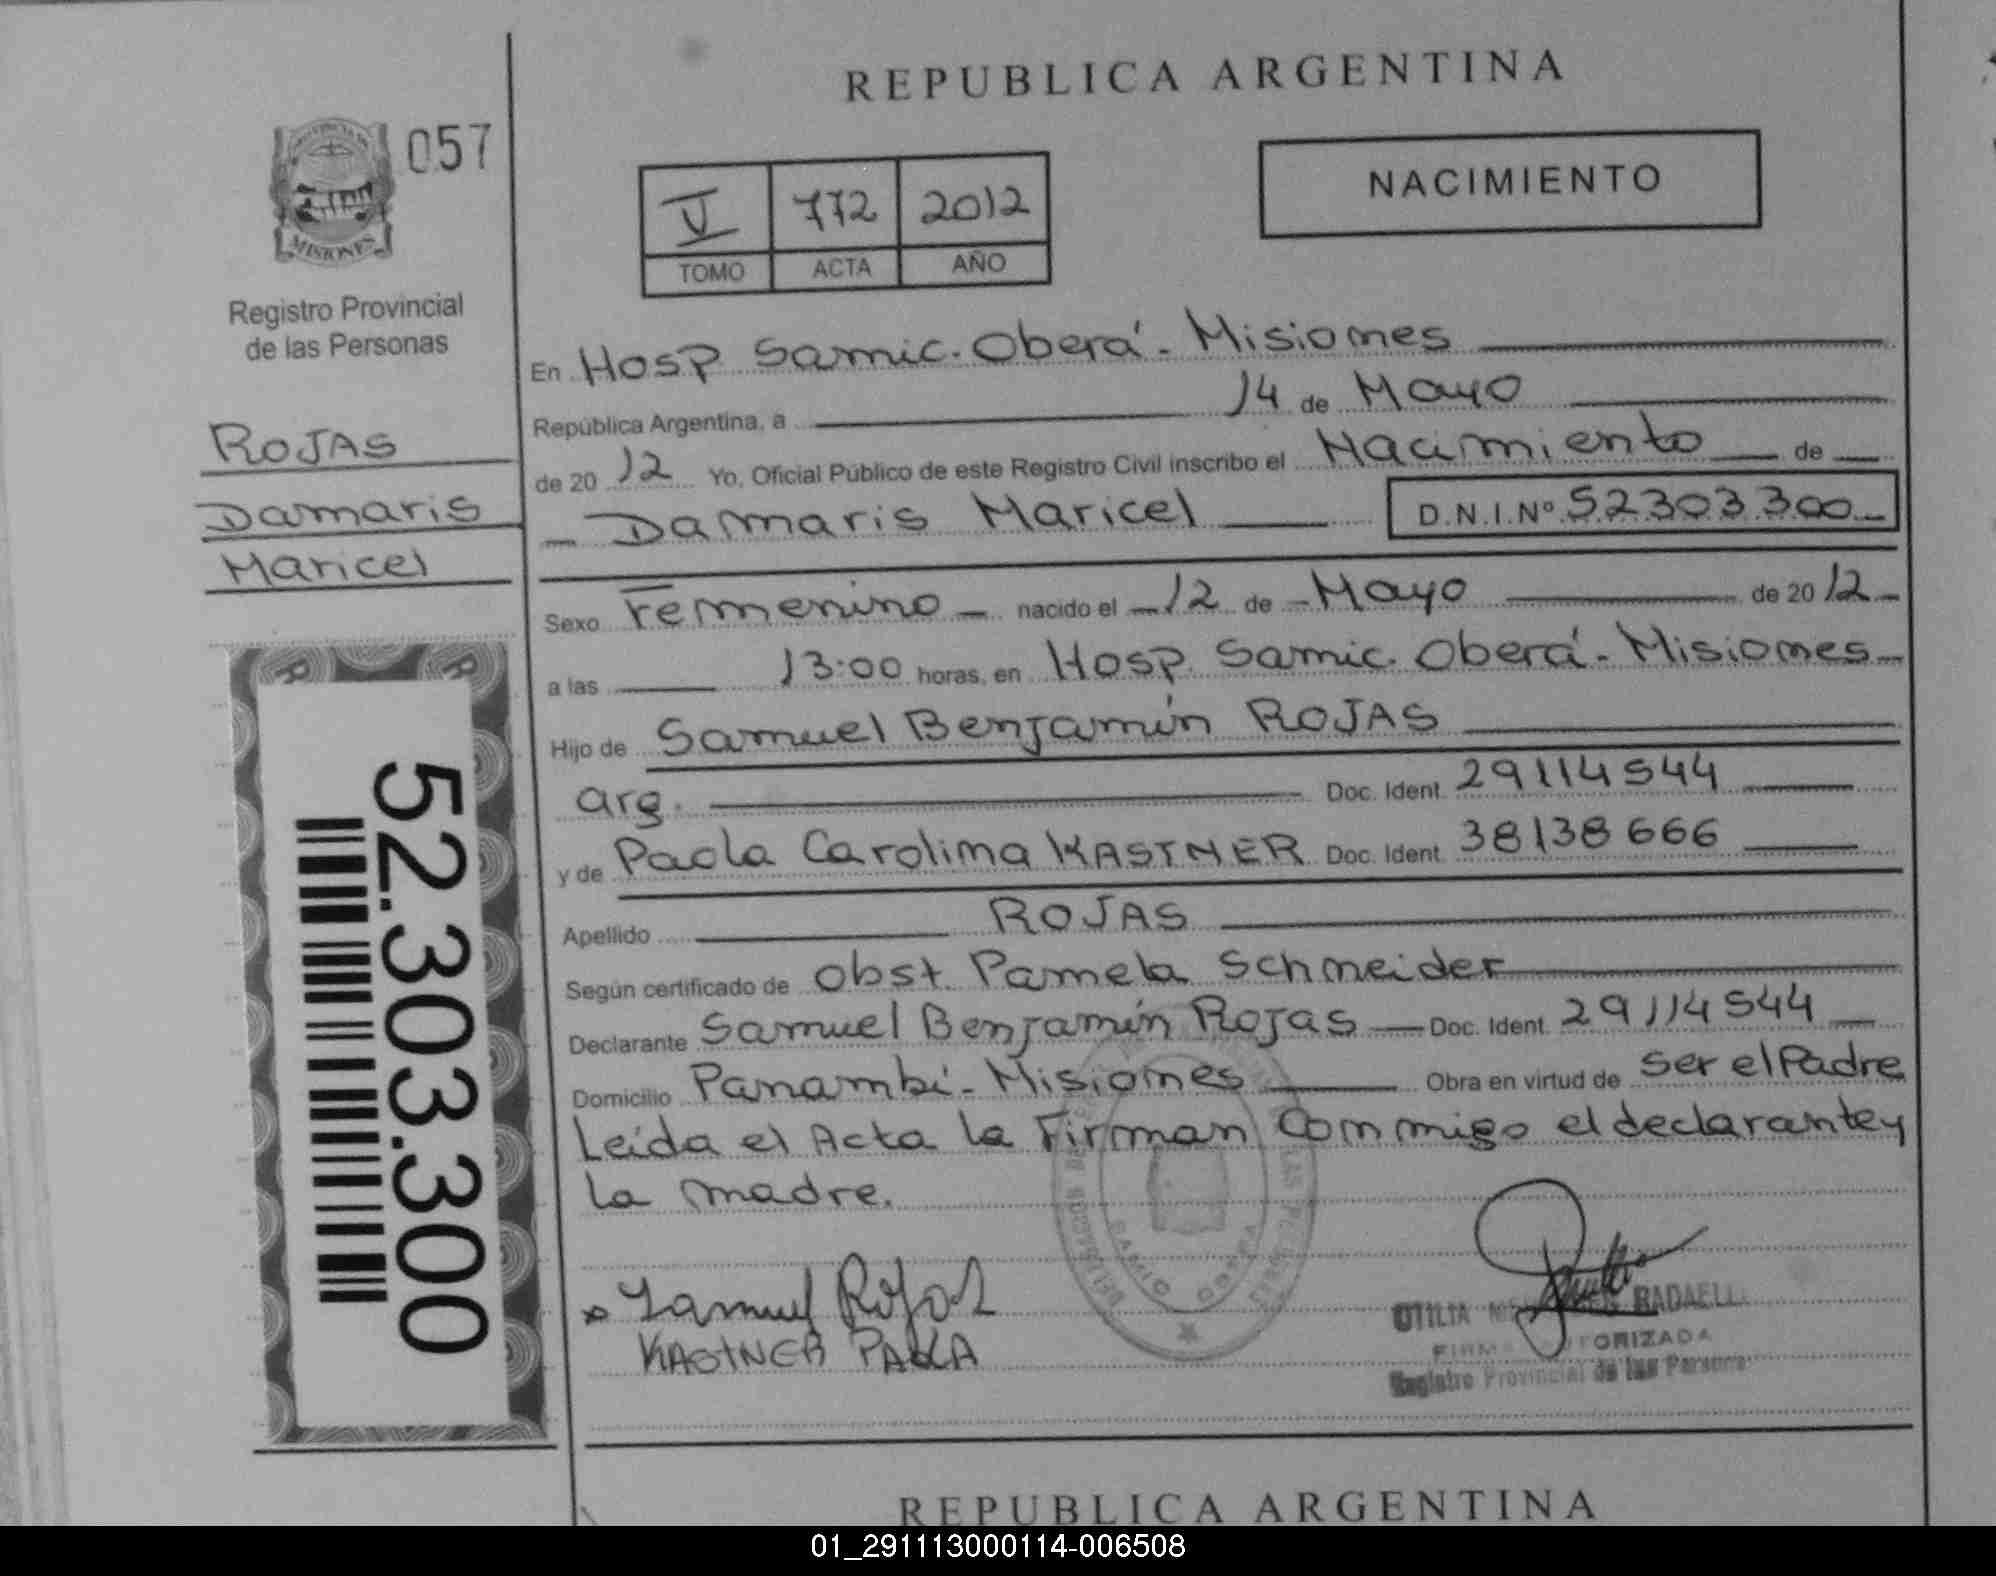 REPUBLICA ARGENTINA
057
PROVINCIA DE
MISIONES
Registro Provincial
de las Personas
NACIMIENTO
V 772 2012
TOMO ACTA AÑO
ROJAS
Damaris
Maricel
52.303.300
En Hosp Samic. Oberá - Misiones
República Argentina, a 14 de Mayo
de 2012 Yo, Oficial Público de este Registro Civil inscribo el Nacimiento de
Damaris Maricel D.N.I.Nº 52303300
Sexo Femenino nacido el 12 de Mayo de 2012
a las 13:00 horas, en Hosp. Samic. Oberá - Misiones
Hijo de Samuel Benjamín ROJAS
arg. Doc. Ident. 29114544
y de Paola Carolina KASTNER Doc. Ident. 38138666
Apellido ROJAS
Según certificado de Obst. Pamela Schneider
Declarante Samuel Benjamín Rojas Doc. Ident. 29114544
Domicilio Panambí - Misiones Obra en virtud de ser el Padre
Leída el Acta la Firman Conmigo el declarante y
la madre.
Samuel Rojas
KASTNER PAOLA
OTILIA RADAELLI
FIRMA AUTORIZADA
Registro Provincial de las Personas
REPUBLICA ARGENTINA
01_291113000114-006508